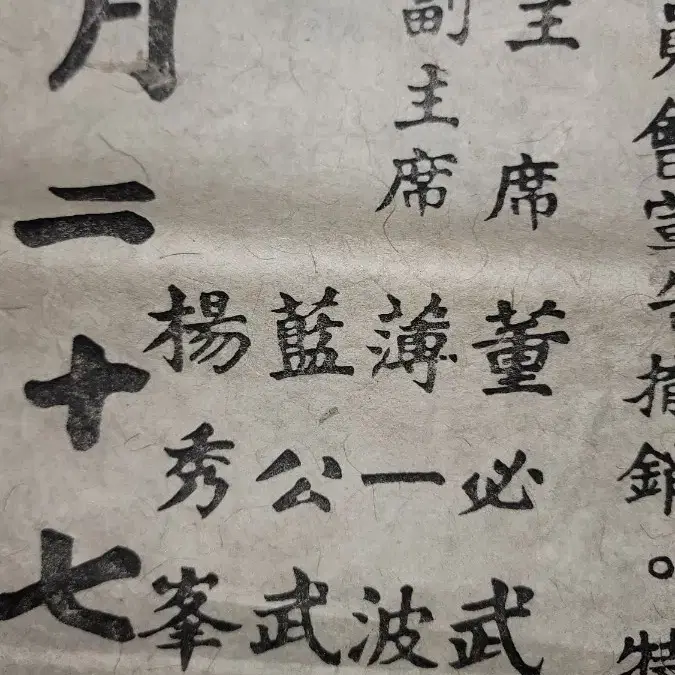 員會宣告撤銷。特
主席 董必武
副主席 薄一波
藍公武
楊秀峯
月二十七